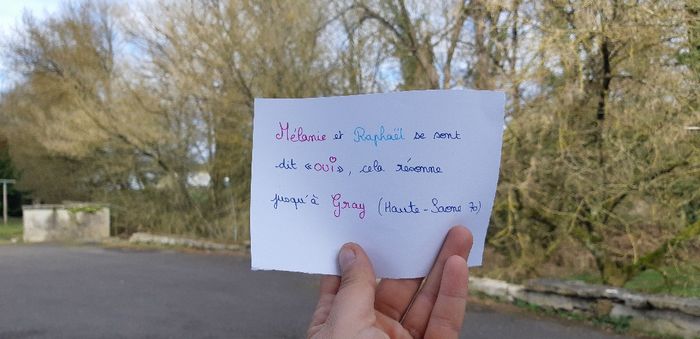 Mélanie et Raphaël se sont
dit «oui», cela résonne
jusqu'à Gray (Haute-Saone 70)